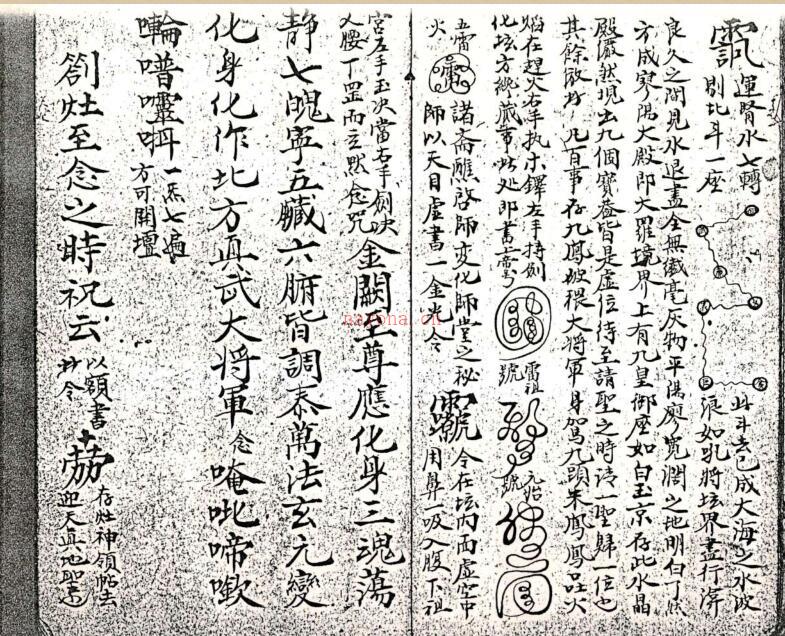 運腎水七轉
剔北斗一座
此斗去已成大海之水波
浪如吼將坛界盡行渰
良久之间見水退盡全無纖毫灰物平陽廖宽濶之地明白了然
方成寥陽大殿即大羅境界上有九皇御座如白玉京存此水晶
殿嚴然現出九個寶座皆是虛位待至請聖之時诗一聖歸一位也
其餘做好凡百事存九鳳破穢大將軍身駕九頭朱鳳鳳吐火
焰在趕火右手执木鐸左手持剑
化坛方繞蔵事此处即書三帝
雷祖
號
元始
號
五雷
火
諸斋醮啓師变化師堂之秘
師以天目虛書一金光令
令在坛内面虛空中
用鼻一吸入腹下祖
宫左手玉决當右手剑决
入腰丁罡而立默念咒
金闕至尊應化身三魂蕩
静七魄寧五臟六腑皆調泰萬法玄元變
化身化作北方真武大将軍
念
唵吡啼㗜
輪噆囑㖇
一炁七遍
方可開壇
劄灶至念之時祝云
以額書
抄令
存灶神領帖去
迎天真地聖來
narona.cn